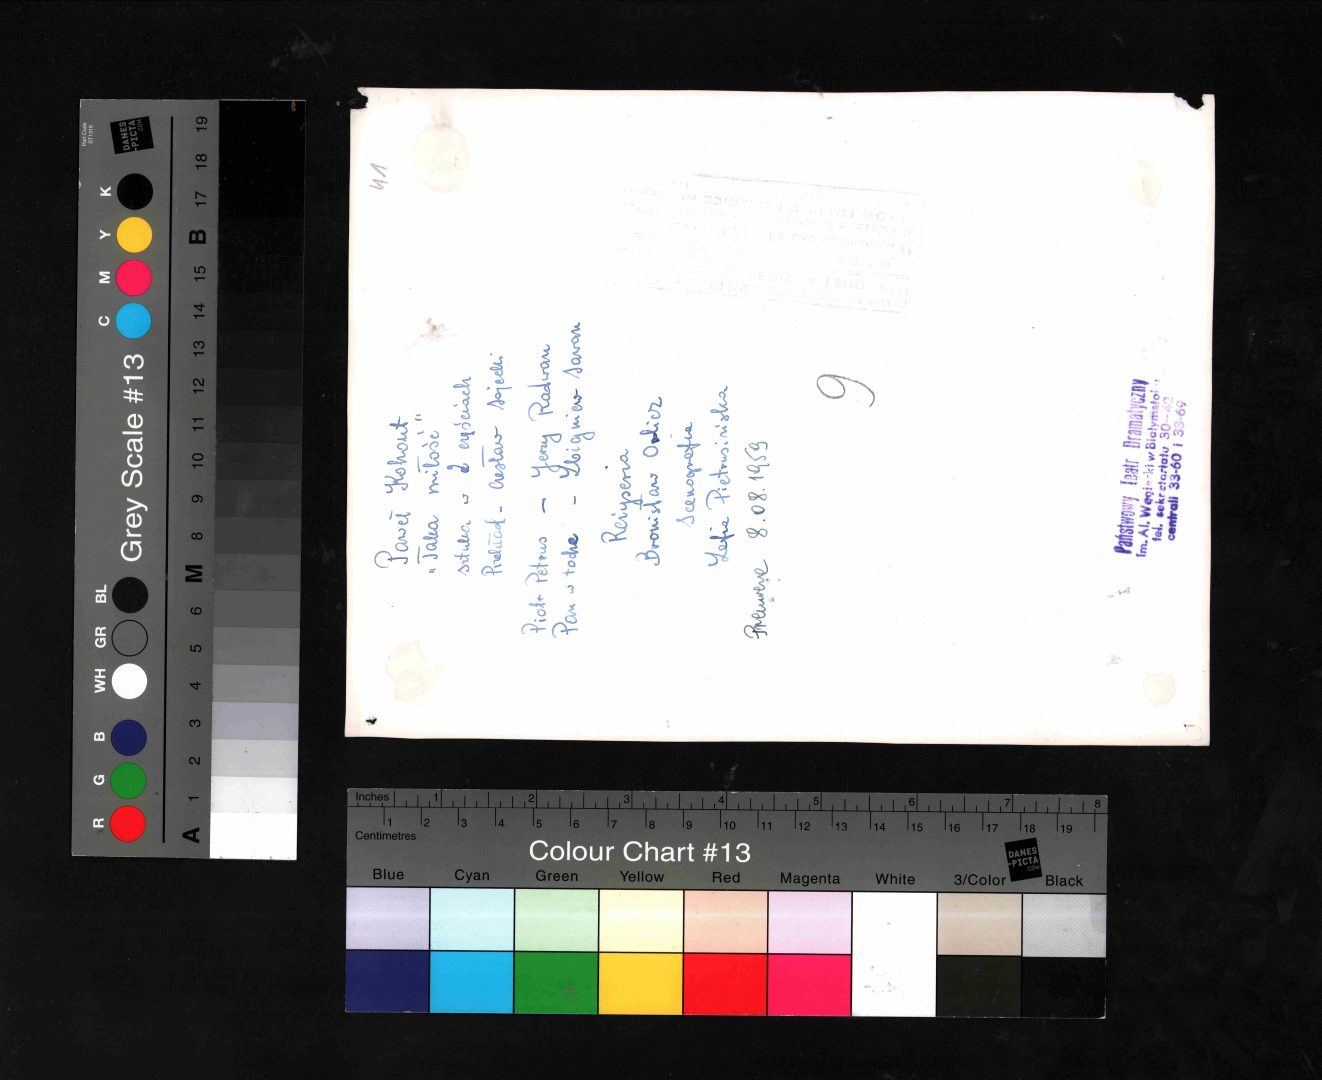 41
Pavel Kohout
"Taka miłość"
sztuka w 2 częściach
Przekład - Czesław Sojecki
Piotr Petrus - Jerzy Radwan
Pan w todze - Zbigniew Sawan
Reżyseria
Bronisław Orlicz
Scenografia
Zofia Pietrusińska
Premiera 8.08.1959
9
Państwowy Teatr Dramatyczny
im. Al. Węgierki w Białymstoku
tel. sekretariatu 30-42
centrali 33-60 i 33-69
Part Code
ST1316
DANES
-PICTA
.COM
Grey Scale #13
R G B WH GR BL C M Y K
A 1 2 3 4 5 6 M 8 9 10 11 12 13 14 15 B 17 18 19
Inches 1 2 3 4 5 6 7 8
1 2 3 4 5 6 7 8 9 10 11 12 13 14 15 16 17 18 19
Centimetres
Colour Chart #13
DANES
-PICTA
.COM
Blue Cyan Green Yellow Red Magenta White 3/Color Black